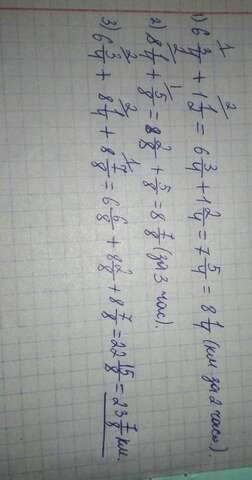 1) 6 3/4 + 1 1/2 = 6 3/4 + 1 2/4 = 7 5/4 = 8 1/4 (км за 2 часа)
2) 8 1/4 + 5/8 = 8 2/8 + 5/8 = 8 7/8 (за 3 час).
3) 6 3/4 + 8 1/4 + 8 7/8 = 6 6/8 + 8 2/8 + 8 7/8 = 22 15/8 = 23 7/8 км.